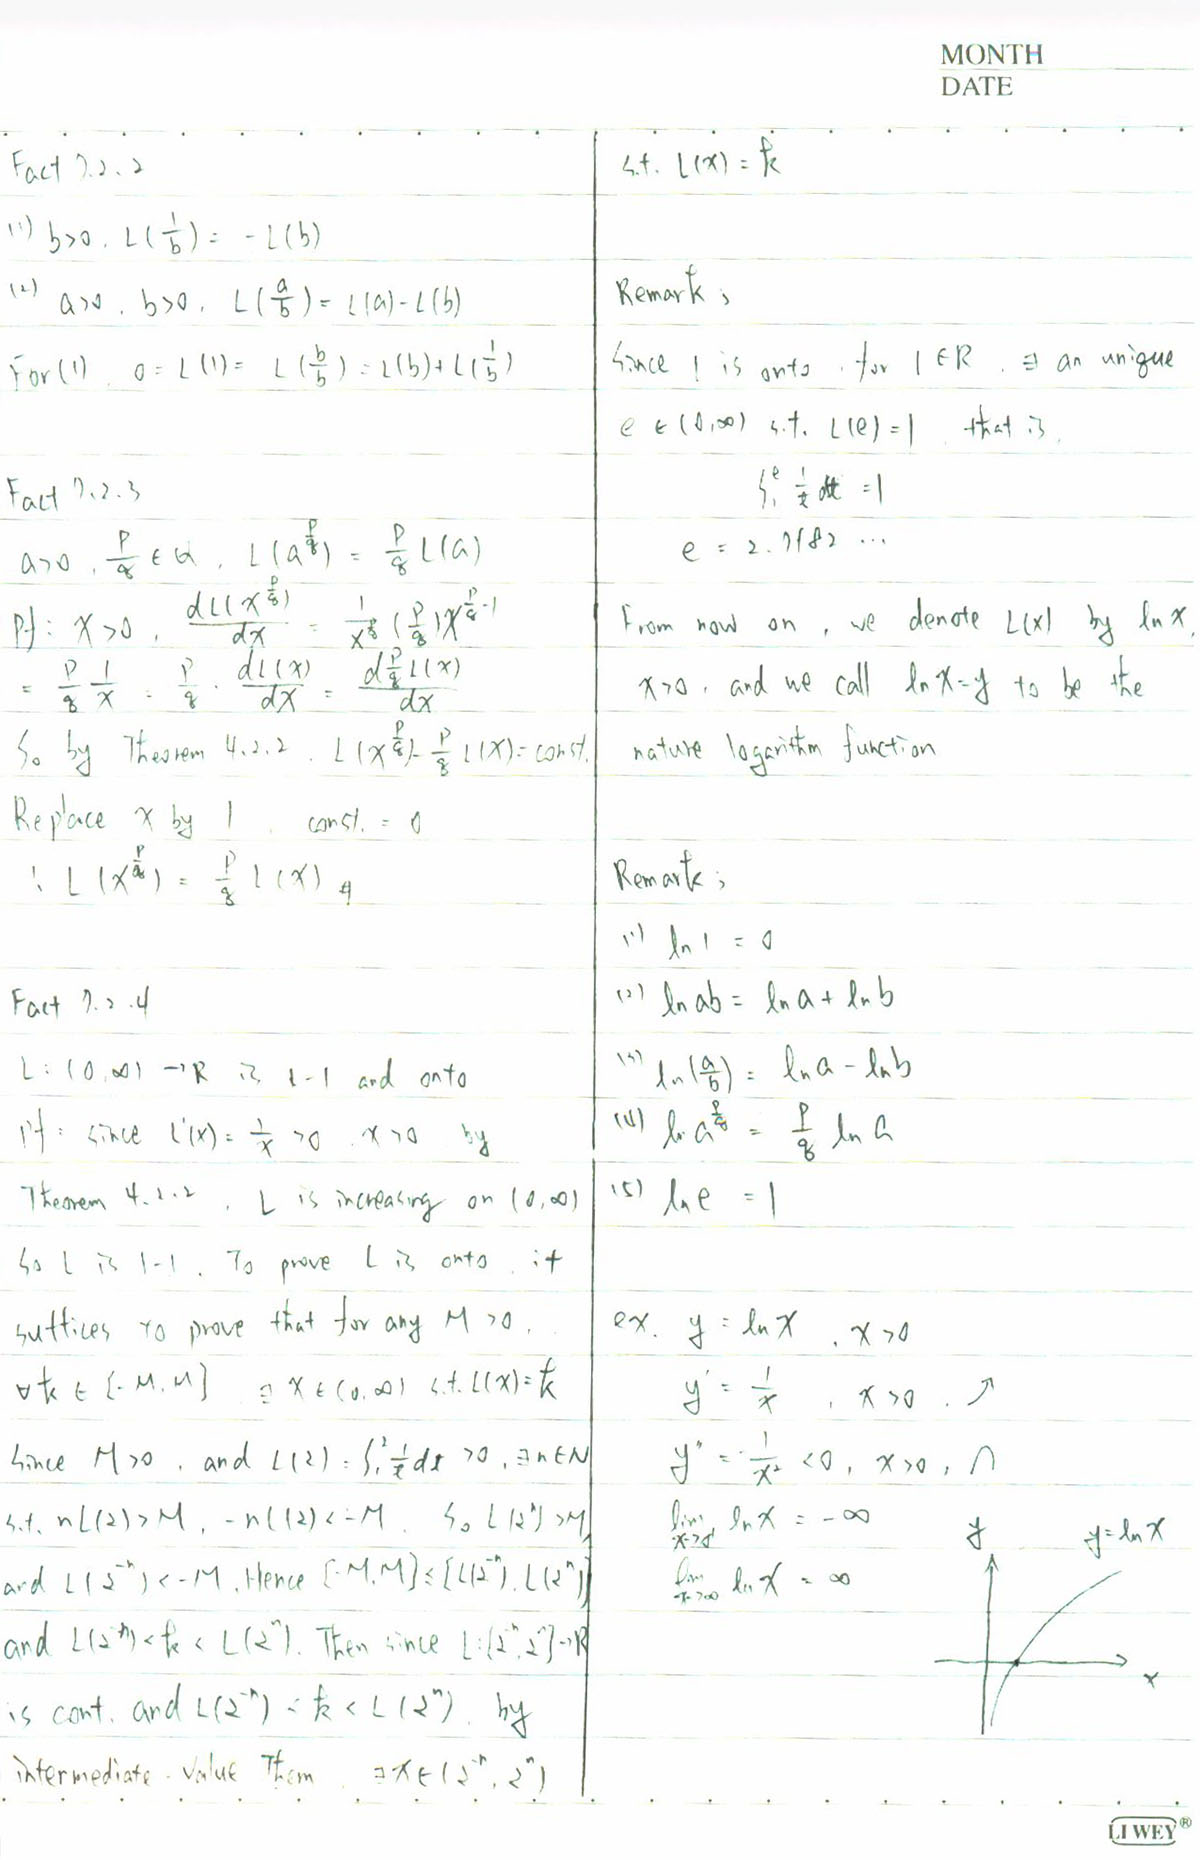 MONTH
DATE
Fact 7.2.2
(1) b>0, L(1/b) = -L(b)
(2) a>0, b>0, L(a/b) = L(a)-L(b)
For (1), 0 = L(1) = L(b/b) = L(b)+L(1/b)
Fact 7.2.3
a>0, p/q ∈ Q, L(a^(p/q)) = p/q L(a)
Pf: x>0, dL(x^(p/q))/dx = 1/x^(p/q) (p/q) x^(p/q -1)
= p/q 1/x = p/q · dL(x)/dx = d p/q L(x)/dx
So by Theorem 4.2.2, L(x^(p/q)) - p/q L(x) = const.
Replace x by 1, const. = 0
∴ L(x^(p/q)) = p/q L(x) #
Fact 7.2.4
L: (0,∞) → R is 1-1 and onto
Pf: since L'(x) = 1/x >0, x>0 by
Theorem 4.2.2, L is increasing on (0,∞)
So L is 1-1. To prove L is onto, it
suffices to prove that for any M >0,
∀k ∈ [-M,M] ∃ x ∈ (0,∞) s.t. L(x)=k
Since M>0, and L(2) = ∫₁² 1/t dt >0, ∃n∈N
s.t. nL(2)>M, -nL(2)<-M. So L(2^n)>M,
and L(2^-n) < -M. Hence [-M,M] ⊆ [L(2^-n), L(2^n)]
and L(2^-n) < k < L(2^n). Then since L:[2^-n, 2^n]→R
is cont. and L(2^-n) < k < L(2^n), by
intermediate-value Them, ∃x∈(2^-n, 2^n)
s.t. L(x) = k
Remark:
Since l is onto, for 1 ∈ R, ∃ an unique
e ∈ (0,∞) s.t. L(e) = 1, that is,
∫₁^e 1/t dt = 1
e = 2.7182 ...
From now on, we denote L(x) by ln x,
x>0, and we call ln x = y to be the
nature logarithm function
Remark:
(1) ln 1 = 0
(2) ln ab = ln a + ln b
(3) ln(a/b) = ln a - ln b
(4) ln a^(p/q) = p/q ln a
(5) ln e = 1
ex. y = ln x, x>0
y' = 1/x, x>0, ↗
y'' = -1/x² <0, x>0, ∩
lim x→0⁺ ln x = -∞
lim x→∞ ln x = ∞
y
y=ln x
x
LIWEY®